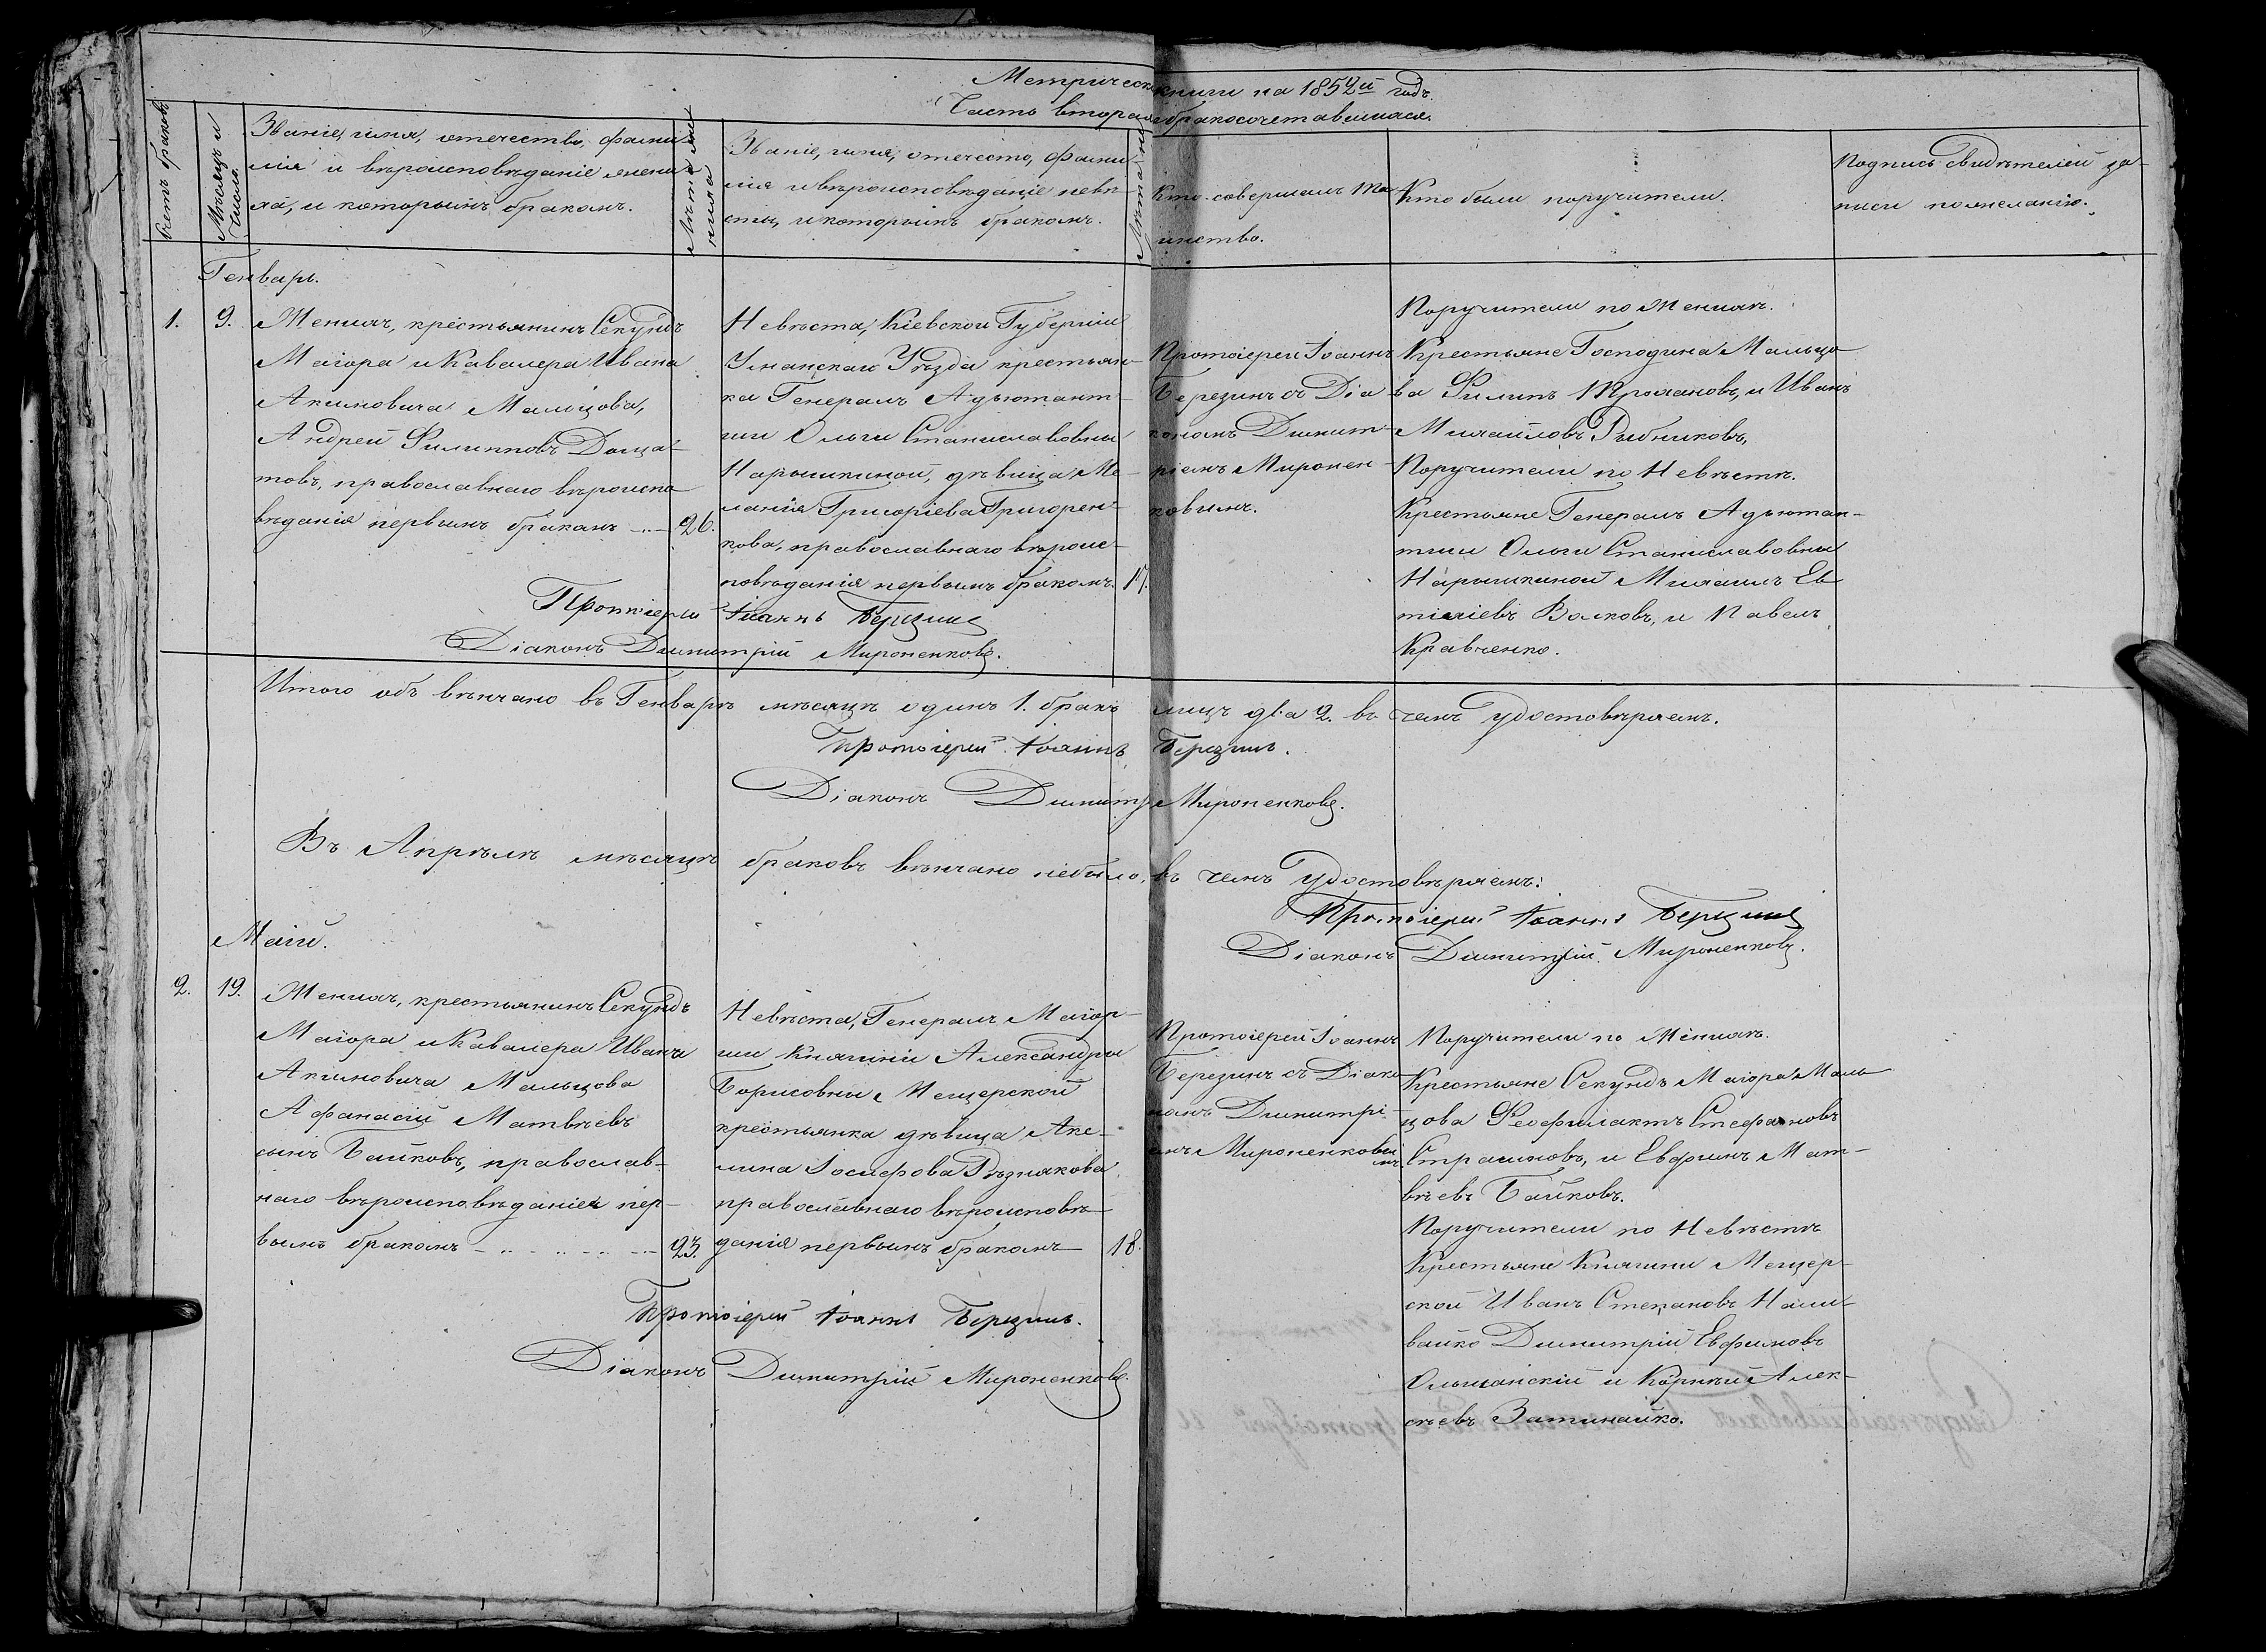 Метрической книги на 1852й годъ.
Часть вторая бракосочетавшихся.
Счетъ браковъ
Мѣсяцъ и
Число.
Званіе, имя, отечество, фами-
лія и вѣроисповѣданіе жени-
ха, и которымъ бракомъ.
Лѣта же-
ниха
Званіе, имя, отечесто, фами-
лія и вѣроисповѣданіе невѣ-
сты, и которымъ бракомъ.
Лѣта не
Кто совершалъ та-
инство.
Кто были поручители.
Подпись свидѣтелей за-
писи по желанію.
Генварь.
1. 9.
Женихъ, крестьянинъ Секундъ
Маіора и Кавалера Ивана
Акимовича Мальцова,
Андрей Филипповъ Доща-
товъ, православнаго вѣроиспо-
вѣданія первымъ бракомъ 26.
Невѣста, Кіевской Губерніи
Уманскаго Уѣзда крестьян-
ка Генералъ Адьютант-
ши Ольги Станиславовны
Нарышкиной, дѣвица Ме-
ланія Григоріева Григорен-
кова, православнаго вѣроис-
повѣданія первымъ бракомъ. 17.
Протоіерей Іоаннъ
Березинъ съ Діа-
кономъ Димит-
ріемъ Миронен-
ковымъ.
Поручители по Женихѣ.
Крестьяне Господина Мальцо-
ва Филипъ Трохановъ, и Иванъ
Михайловъ Рыбниковъ,
Поручители по Невѣстѣ.
Крестьяне Генералъ Адьютан-
тши Ольги Станиславовны
Нарышкиной Михаилъ Ев-
тихіевъ Волковъ, и Павелъ
Кравченко.
Протоіерей Іоаннъ Березинъ
Діаконъ Димитрій Мироненковъ.
Итого объ вѣнчано въ Генварѣ мѣсяцѣ одинъ 1. бракъ лицъ два 2. въ чемъ удостовѣряемъ.
Протоіерей Іоаннъ Березинъ.
Діаконъ Димитр Мироненковъ.
Въ Апрѣлѣ мѣсяцѣ браковъ вѣнчано небыло, въ чемъ Удостовѣряемъ:
Протоіерей Іоаннъ Березинъ
Діаконъ Димитрій Мироненковъ.
Маій.
2. 19.
Женихъ, крестьянинъ Секундъ
Маіора и Кавалера Ивана
Акимовича Мальцова
Афанасій Матвѣевъ
сынъ Байковъ, православ-
наго вѣроисповѣданія пер-
вымъ бракомъ 23.
Невѣста, Генералъ Маіор-
ши Княгини Александры
Борисовны Мещерской
крестьянка дѣвица Аке-
лина Іосифова Рѣзнякова
православнаго вѣроисповѣ-
данія первымъ бракомъ 18.
Протоіерей Іоаннъ
Березинъ съ Діако-
номъ Димитрі-
емъ Мироненковы
мъ.
Поручители по Женихѣ.
Крестьяне Секундъ Маіора Маль-
цова Феофилактъ Стефановъ
Страшновъ, и Евфимъ Мат-
вѣевъ Байковъ.
Поручители по Невѣстѣ
Крестьяне Княгини Мещер-
ской Иванъ Степановъ Нали-
вайко Димитрій Евфимовъ
Ольшанскій и Корнѣй Алек-
сѣевъ Заминайко.
Протоіерей Іоаннъ Березинъ.
Діаконъ Димитрій Мироненковъ.